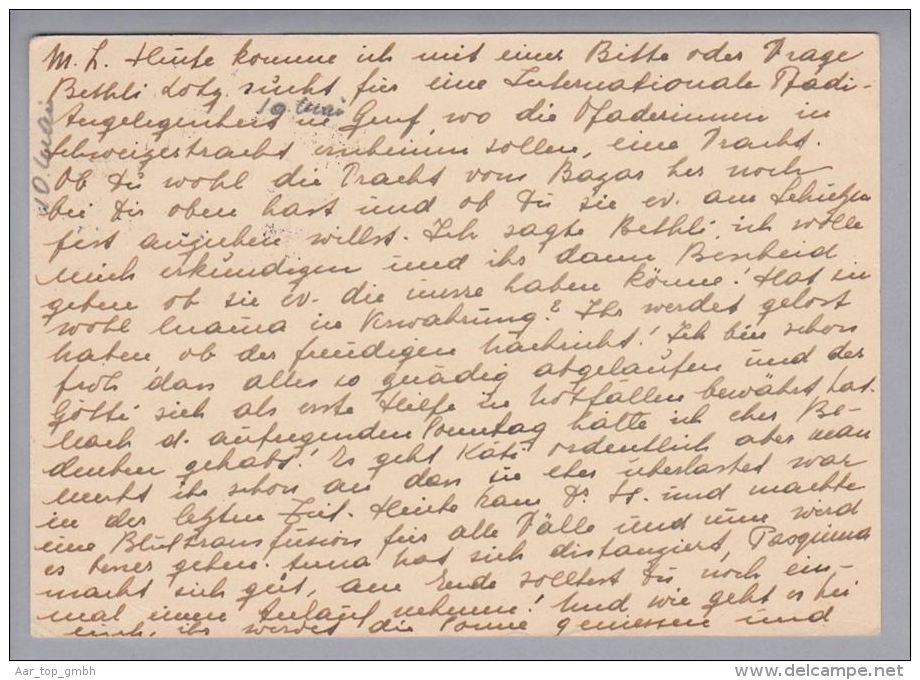 M. L. Heute komme ich mit einer Bitte oder Frage
Bethli Lotz sucht für eine Internationale Pfadi-
Angelegenheit in Genf, wo die Pfaderinnen in
10. Mai
10. Mai
Schweizertracht erscheinen sollen, eine Tracht.
Ob Du wohl die Tracht vom Bazar her noch
bei Dir oben hast und ob Du sie ev. am Schützen
fest anziehen willst. Ich sagte Bethli, ich wolle
mich erkundigen und ihr dann Bescheid
geben ob sie ev. die unsre haben könne! Hat sie
wohl Mama in Verwahrung? Ihr werdet gelost
haben ob der freudigen Nachricht! Ich bin schon
froh, dass alles so gnädig abgelaufen und der
Götti sich als erste Hilfe in Notfällen bewährt hat.
Nach d. aufregenden Sonntag hätte ich eher Be-
denken gehabt! Es geht Käti ordentlich aber man
merkt ihr schon an dass sie eher überlastet war
in der letzten Zeit. Heute kam Dr. H. und machte
eine Bluttransfusion für alle Fälle und nun werd
es besser gehen. Anna hat sich distanziert, Pasquina
macht sich gut, am Ende solltest Du noch ein-
mal einen Anlauf nehmen! Und wie geht es bei
euch, ihr werdet die Sonne geniessen und
Aar_top_gmbh
www.delcampe.net